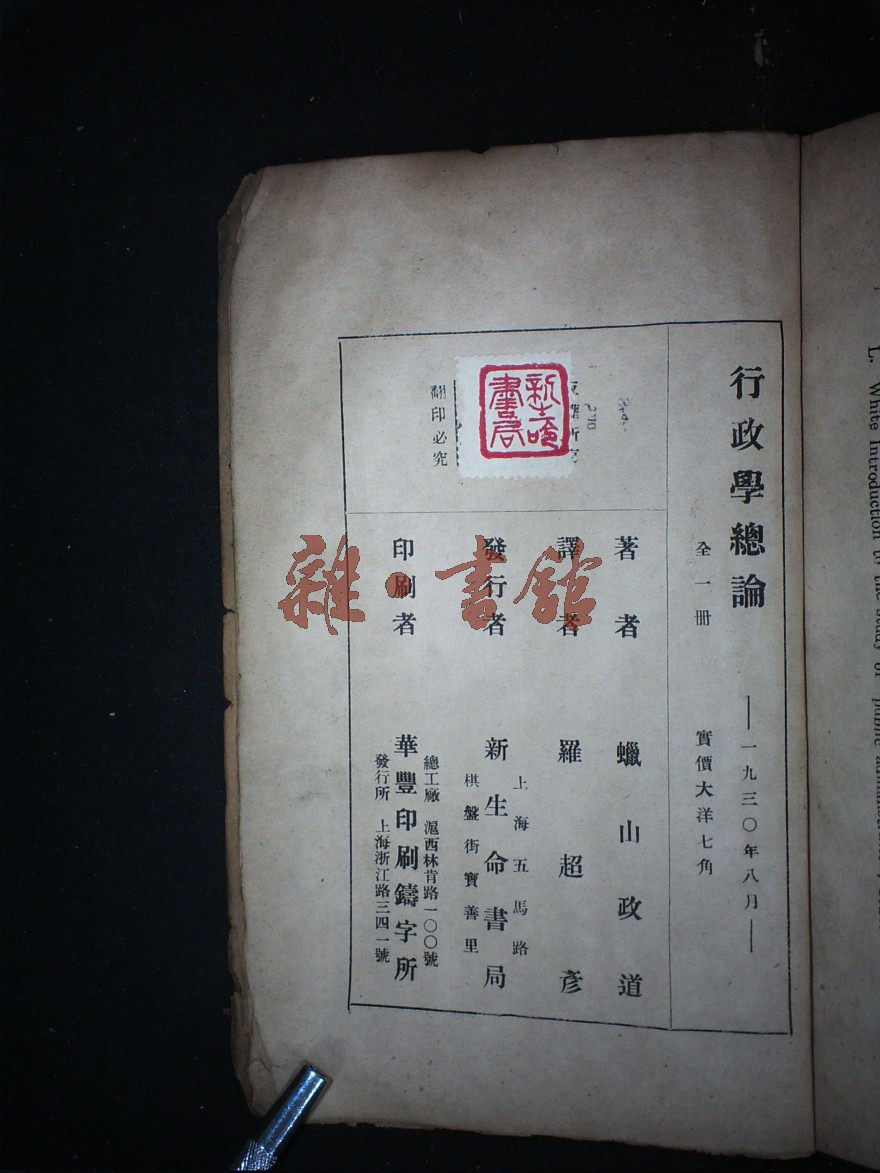 行政學總論
——一九三〇年八月——
全一冊
實價大洋七角
著者 蠟山政道
譯者 羅超彥
發行者 新生命書局
上海五馬路
棋盤街寶善里
印刷者 華豐印刷鑄字所
總工廠 滬西林肯路一〇〇號
發行所 上海浙江路三四一號
翻印必究
新生命書局
雜·書館
L. White Introduction to the study of public administration